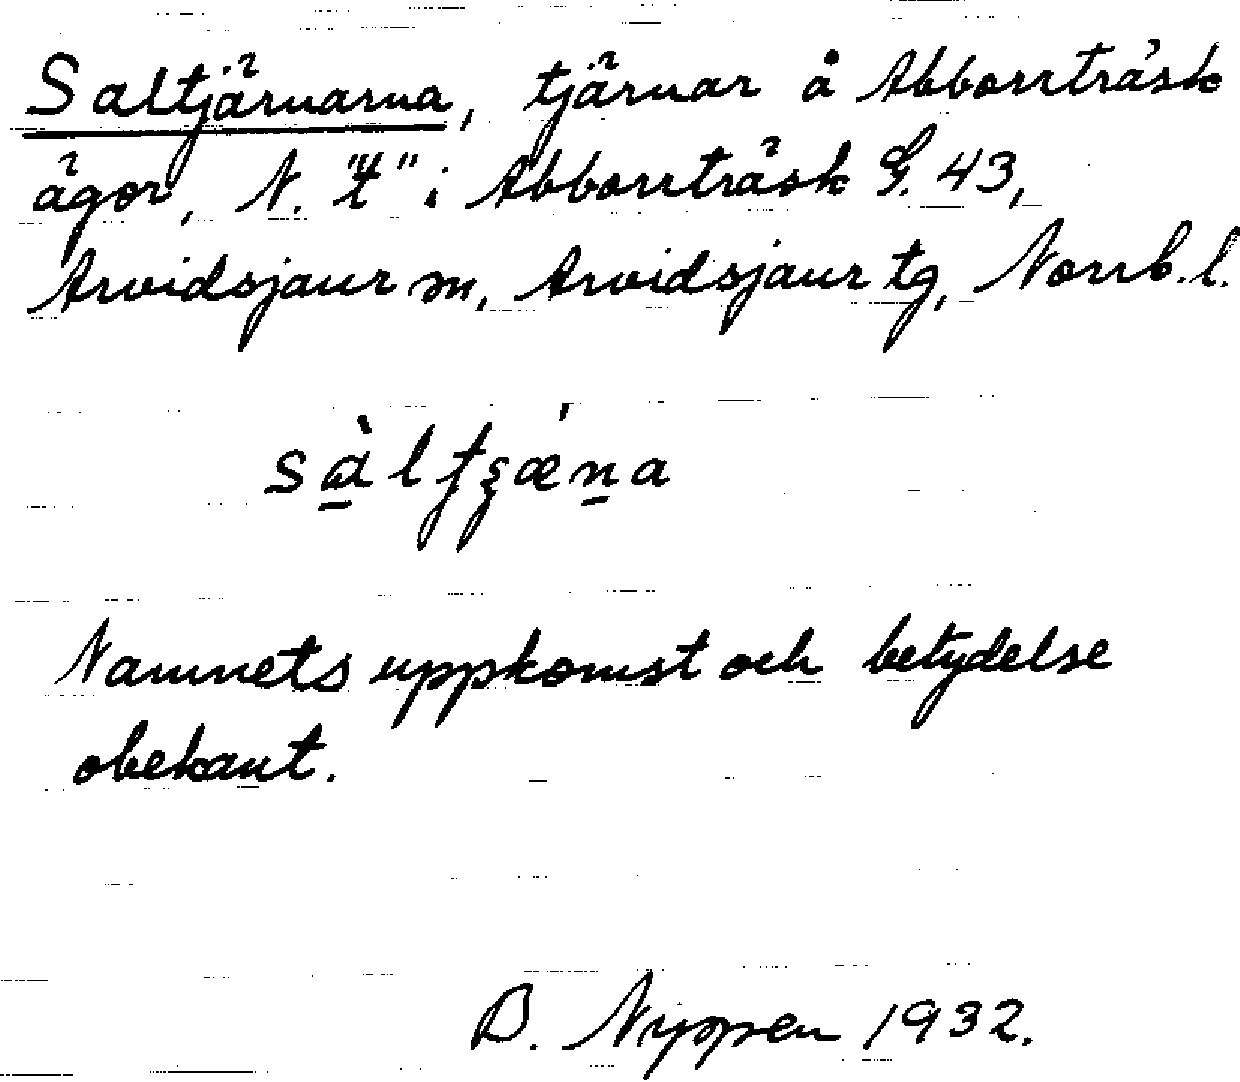 Saltjärnarna, tjärnar å Abborrträsk
ägor, N. "t" i Abborrträsk G. 43,
Arvidsjaur sn, Arvidsjaur tg, Norrb. l.
Namnets uppkomst och betydelse
obekant.
B. Nyppen 1932.